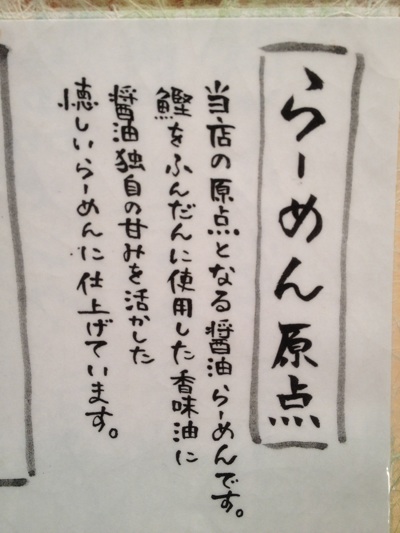 らーめん原点
当店の原点となる醤油らーめんです。
鰹をふんだんに使用した香味油に
醤油独自の甘みを活かした
懐しいらーめんに仕上げています。